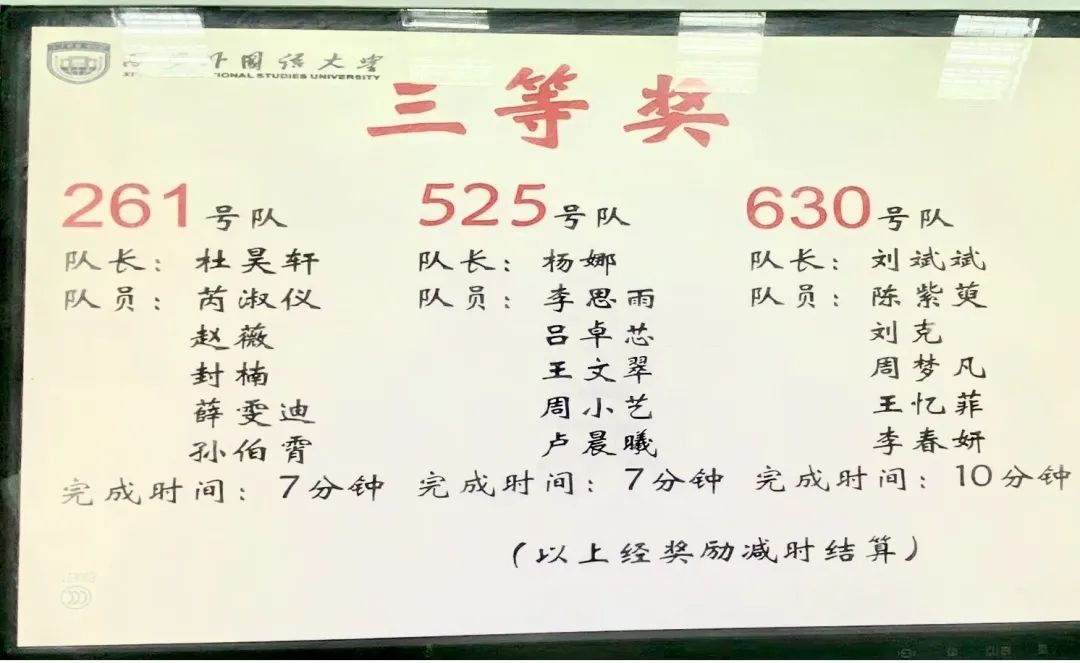 外国语大学
TIONAL STUDIES UNIVERSITY
三等奖
261号队
队长：杜昊轩
队员：芮淑仪
赵薇
封楠
薛雯迪
孙伯霄
完成时间：7分钟
525号队
队长：杨娜
队员：李思雨
吕卓芯
王文翠
周小艺
卢晨曦
完成时间：7分钟
630号队
队长：刘斌斌
队员：陈紫萸
刘克
周梦凡
王忆菲
李春妍
完成时间：10分钟
（以上经奖励减时结算）